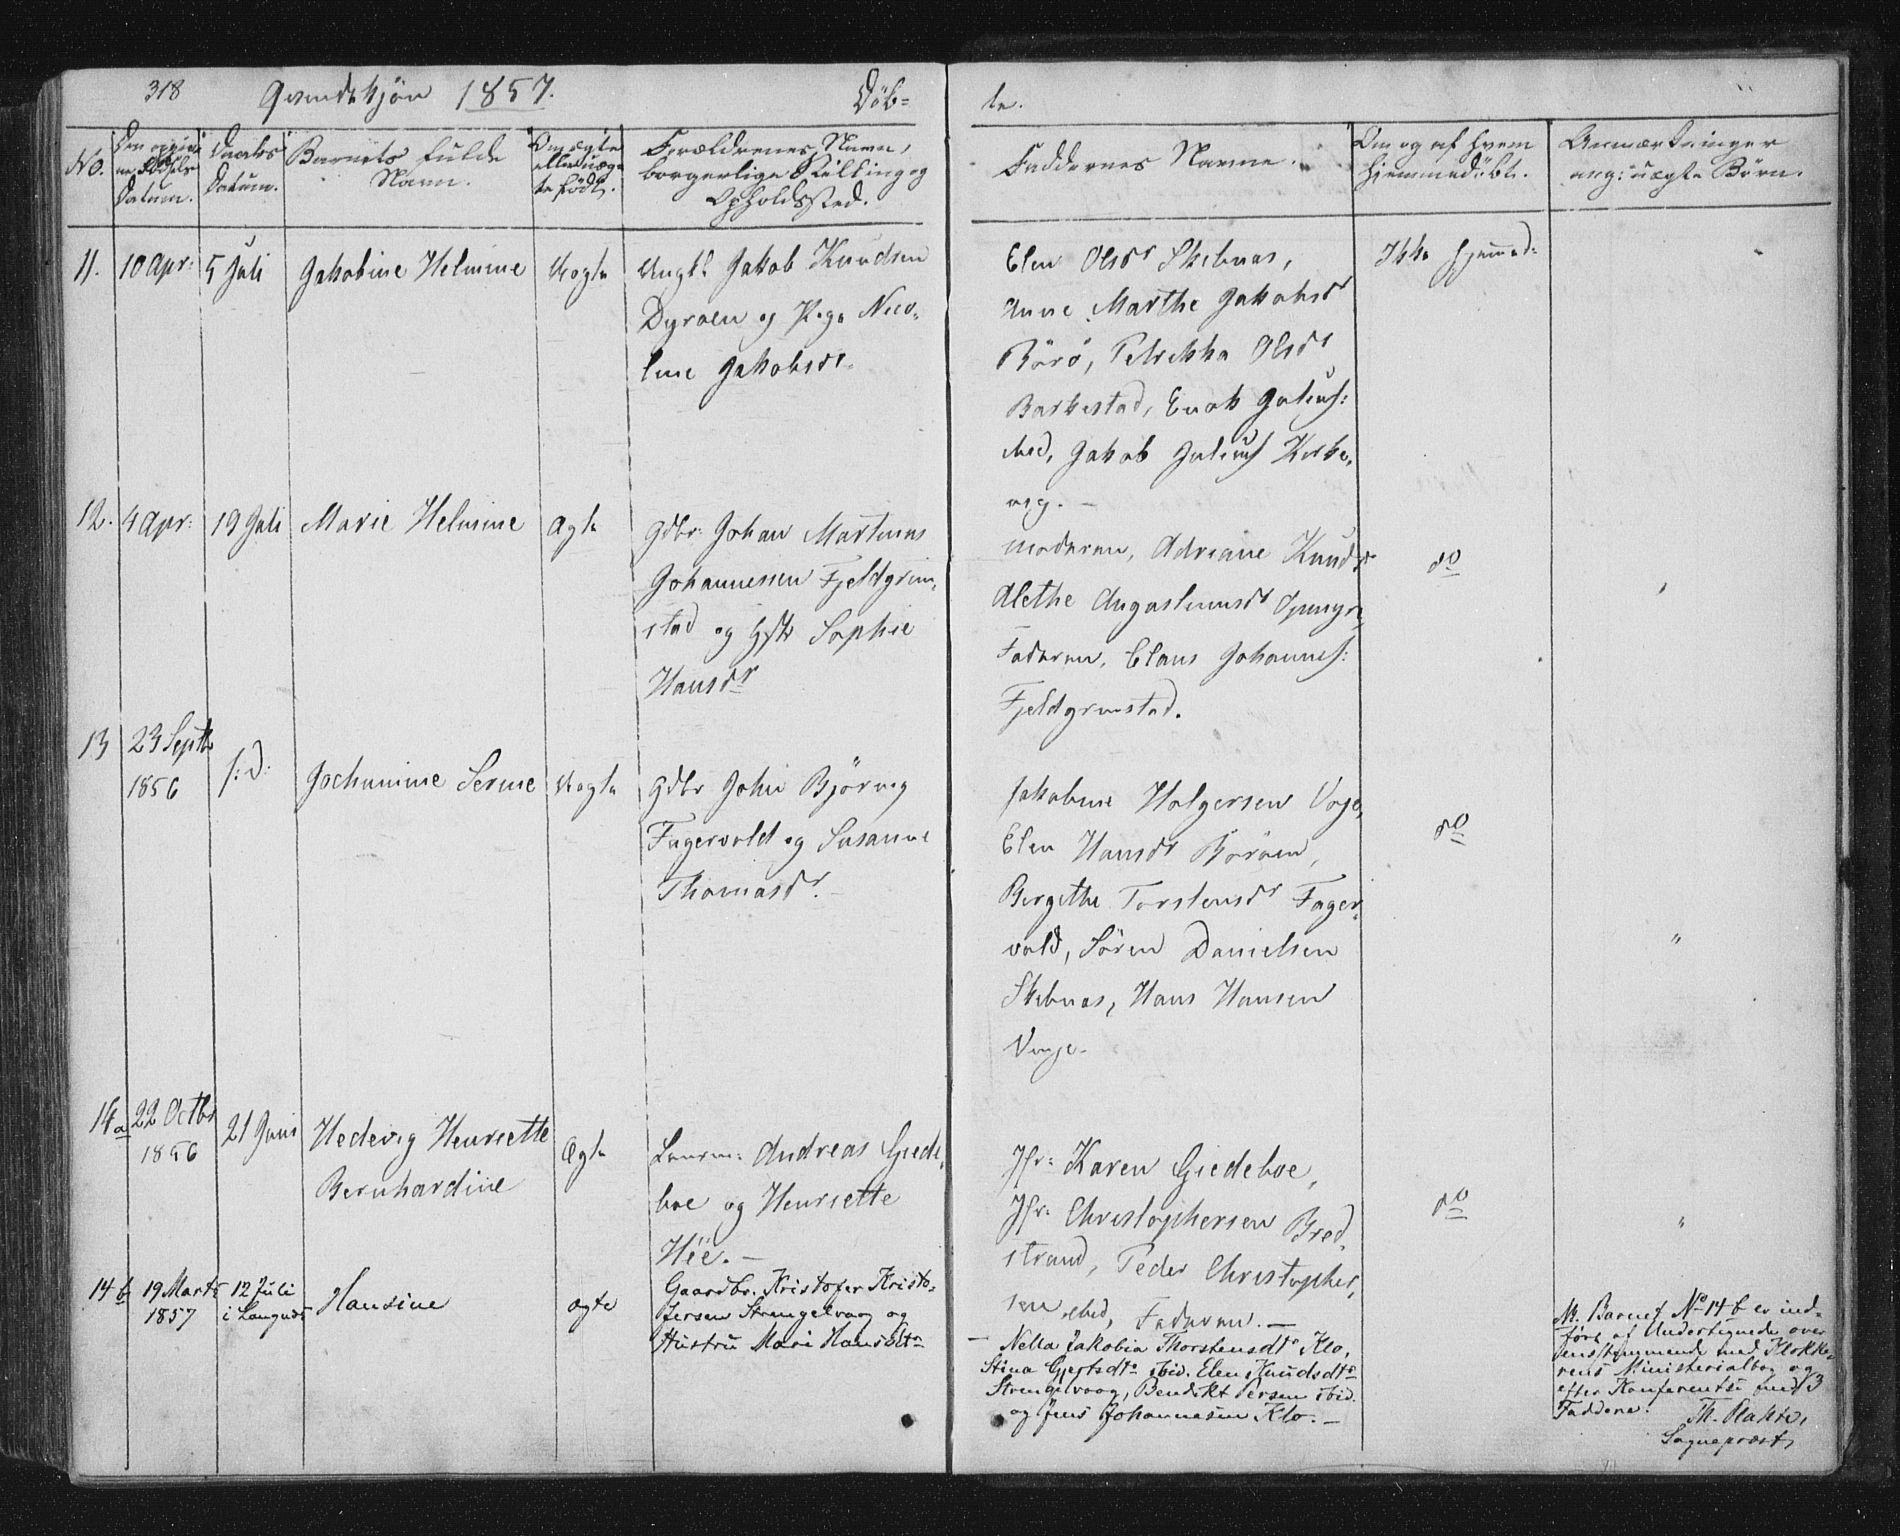 318 Qvindekjøn 1857. Døb-
te.
No.
Den opgiv-
ne Fødsels
Datum.
Daabs
Datum.
Barnets fulde
Navn.
Om ægte
eller uæg-
te født.
Forældrenes Navn,
borgerlige Stilling og
Opholdssted.
Faddernes Navne.
Om og af hvem
hjemmedøbt.
Anmærkninger
ang: uægte Børn.
11. 10 Apr: 5 Juli Jakobine Helmine Uægte
Ungk. Jakob Knudsen
Dyrøen og Pige Nico-
line Jakobsdr.
Elen Olsdr Skebnæs,
Anne Marthe Jakobsdr
Börö, Petrikka Olsdr
Barkestad, Enok Juliuss:
ibid, Jakob Juliuss Kirke-
vig. —
Ikke hjemmed:
12. 4 Apr: 19 Juli Marie Helmine Ægte
Gdbr. Johan Martinus
Johannessen Fjeldgrim-
stad og Hstr Sophie
Hansdr
Moderen, Adriane Knudsdr
Alethe Augustinusdr
Faderen, Claus Johanness:
Fjeldgrimstad.
do
13 23 Septbr
1856
s: D: Jochumine Serine Uægte
Gdbr John Björvig
Fagervold og Susanne
Thomasdr. —
Jakobine Holgersen Voje,
Elen Hansdr Böröen,
Bergithe Torstensdr Fager-
vold, Sören Danielsen
Skebnæs, Hans Hansen
Voije.
do
"
14 a 22 Octbr
1856
21 Juni Hedevig Henriette
Bernhardine
Ægte
Andreas Giede-
boe og Henriette
Hïe. —
Jfr: Karen Giedeboe,
Jfr: Christophersen Bred-
strand, Peder Christopher-
sen ibid, Faderen. —
do
"
14 b 19 Marts
1857
12 Juli
i Langnæs
Hansine ægte
Gaardbr. Kristofer Kristo-
fersen Strengelvaag og
Hustru Mari Hansdtr
— Nella Jakobia Thorstensdtr Klo,
Stina Gjertsdtr ibid. Elen Knudsdtr
Strengelvaag, Benedikt Persen ibid.
og Jens Johannesen Klo. —
M. Barnet No 14 b er ind-
ført af Undertegnede over
ensstemmende med Klokke-
rens Ministerialbog og
efter Konferentse med 3
Faddere.
Sogneprest